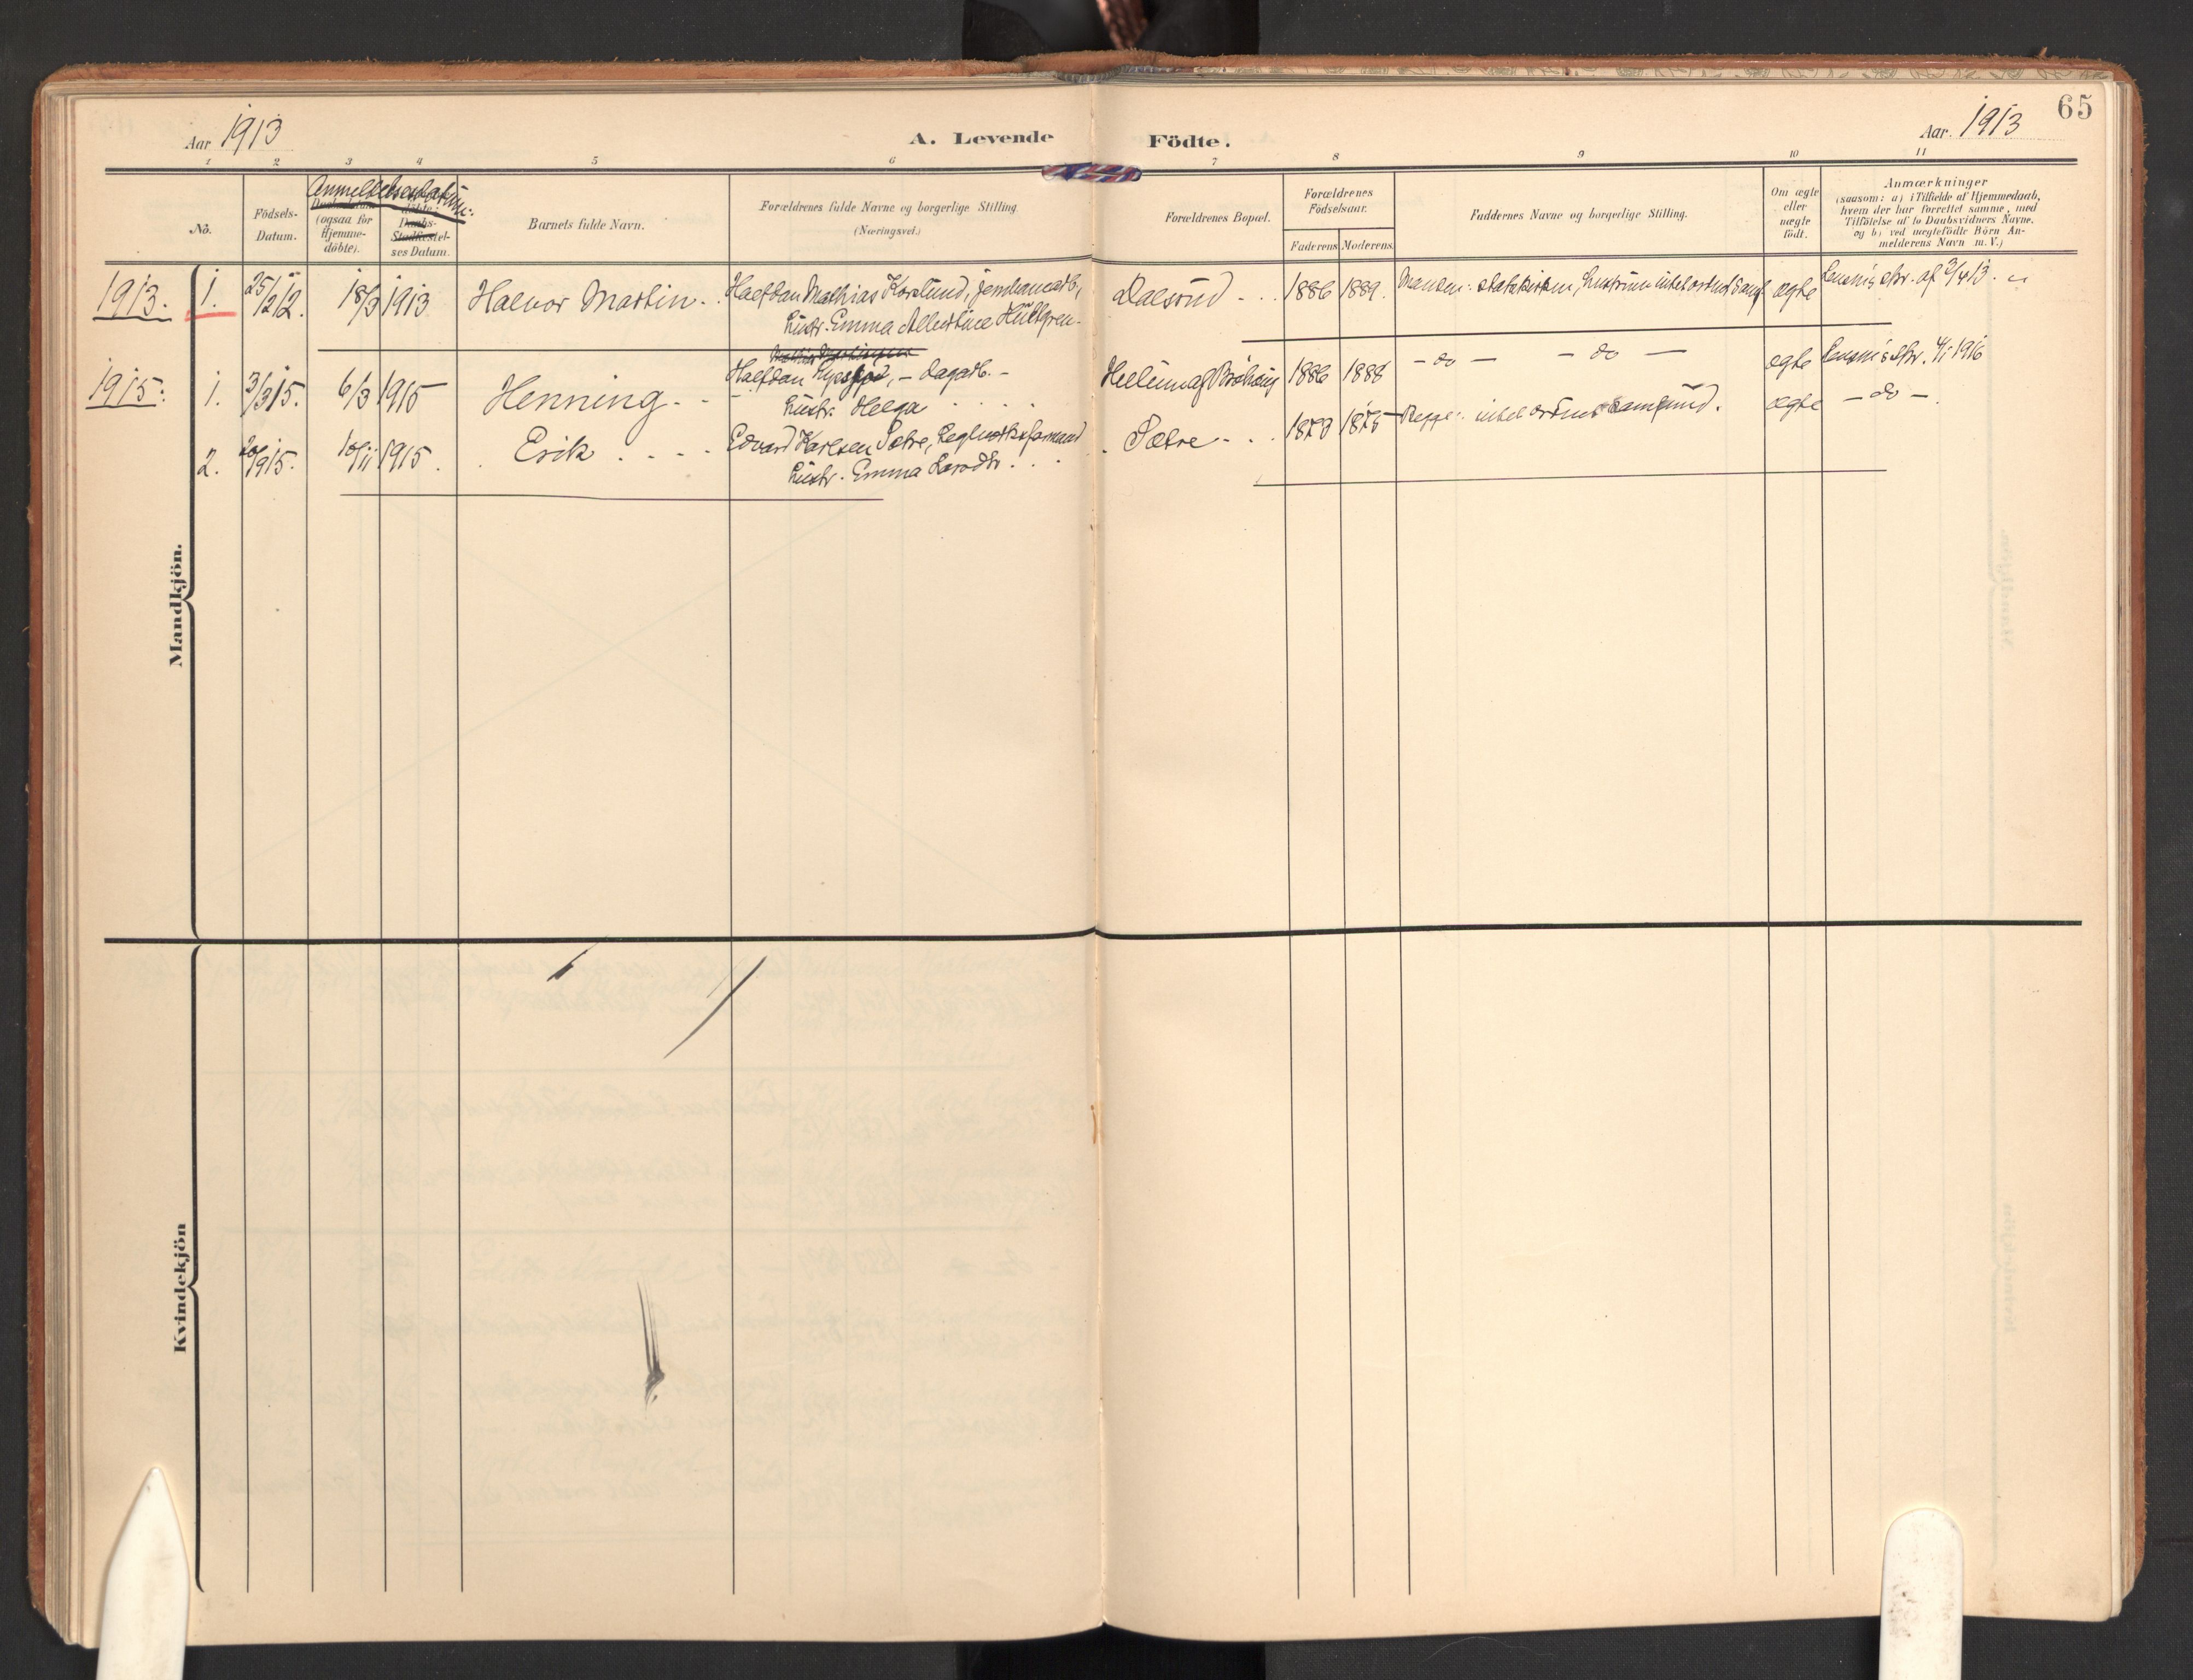 65
Aar 1913
A. Levende Födte.
Aar. 1913
1 2 3 4 5 6 7 8 9 10 11
No.
Födsels-
Datum.
Anmeldelsesdatum.
(ogsaa for
Hjemme-
döbte).
Daabs-
Stadfæstel-
ses Datum.
Barnets fulde Navn.
Forældrenes fulde Navne og borgerlige Stilling
(Næringsvei.)
Forældrenes Bopæl.
Forældrenes
Födselsaar.
Faderens Moderens
Faddernes Navne og borgerlige Stilling.
Om ægte
eller
uægte
födt.
Anmærkninger
(saasom: a) i Tilfælde af Hjemmedaab,
hvem der har forrettet samme, med
Tilföielse af to Daabsvidners Navne.
og b) ved uægtefödte Börn An-
melderens Navn m. V.)
1913. 1. 25/12 12. 18/3 1913 Halvor Martin. Halfdan Mathias
hustr. Emma Albertine Hultgren.
Dalsund 1886 1889. Manden: statskirken, hustruen intet ægte
1915. 1. 3/3 15. 6/3 1915 Henning Halfdan dagarb.
hustr. Helga
1886 1888 - do - - do - ægte 4/1 1916
2. 20/9 15. 10/11 1915. Erik Edvard Karlsen Sætre,
hustr. Emma
Sætre 1873 1875 Begge: intet ordnet samfund. ægte - do -.
Mandkjön.
Kvindekjön